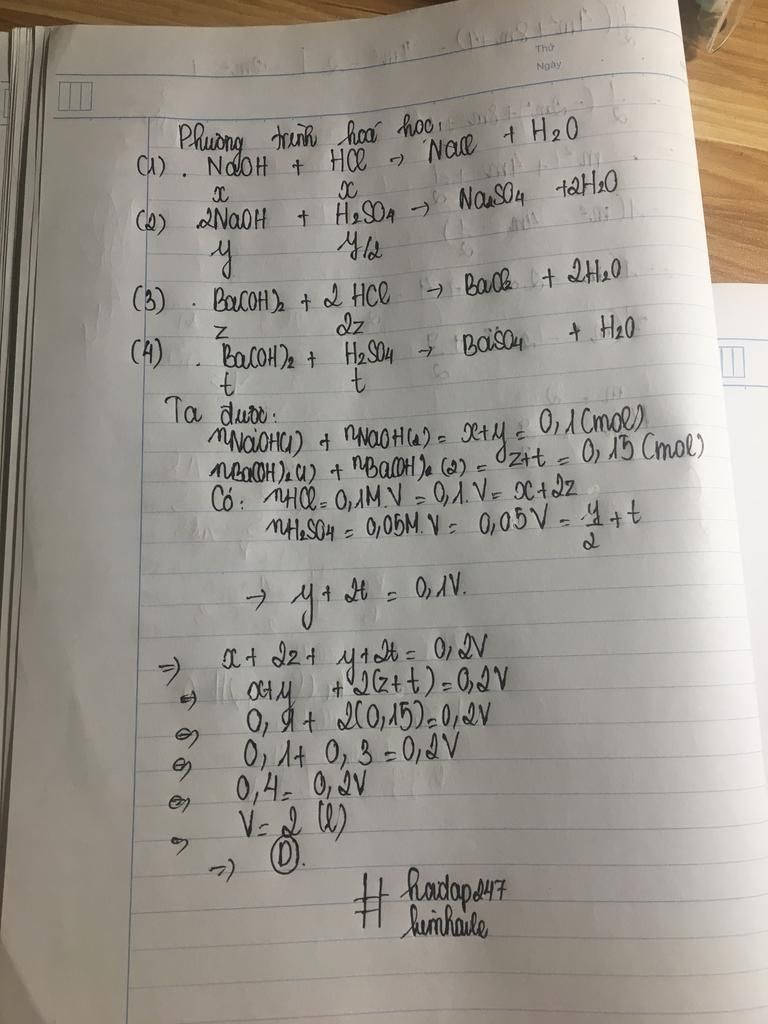 Thứ
Ngày
Phương trình hoá học:
(1) . NaOH + HCl → NaCl + H₂O
x x
(2) 2NaOH + H₂SO₄ → Na₂SO₄ +2H₂O
y y/2
(3) . Ba(OH)₂ + 2 HCl → BaCl₂ + 2H₂O
z 2z
(4) . Ba(OH)₂ + H₂SO₄ → BaSO₄ + H₂O
t t
Ta được:
nNaOH(1) + nNaOH(2) = x+y = 0,1 (mol)
nBa(OH)₂(1) + nBa(OH)₂(2) = z+t = 0,15 (mol)
Có: nHCl = 0,1M.V = 0,1.V = x+2z
nH₂SO₄ = 0,05M.V = 0,05V = y/2 + t
→ y + 2t = 0,1V.
⇒ x + 2z + y+2t = 0,2V
⇔ (x+y + 2(z+t) = 0,2V
⇔ 0,1 + 2(0,15) = 0,2V
⇔ 0,1+ 0,3 = 0,2V
⇔ 0,4 = 0,2V
⇔ V = 2 (l)
⇒ D.
# hoidap247